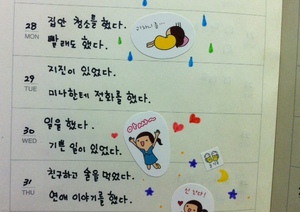 28
MON
집안 청소를 했다.
빨래도 했다.
29
TUE
지진이 있었다.
미나한테 전화를 했다.
30
WED
일을 했다.
기쁜 일이 있었다.
31
THU
친구하고 술을 먹었다.
연애 이야기를 했다.